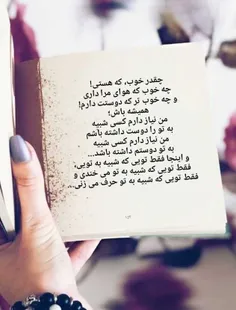 چقدر خوب، که هستی!
چه خوب که هوای مرا داری
و چه خوب تر که دوستت دارم!
همیشه باش؛
من نیاز دارم کسی شبیه
به تو را دوست داشته باشم
من نیاز دارم کسی شبیه
به تو دوستم داشته باشد...
و اینجا فقط تویی که شبیه به تویی،
فقط تویی که شبیه به تو می خندی و
فقط تویی که شبیه به تو حرف می زنی...